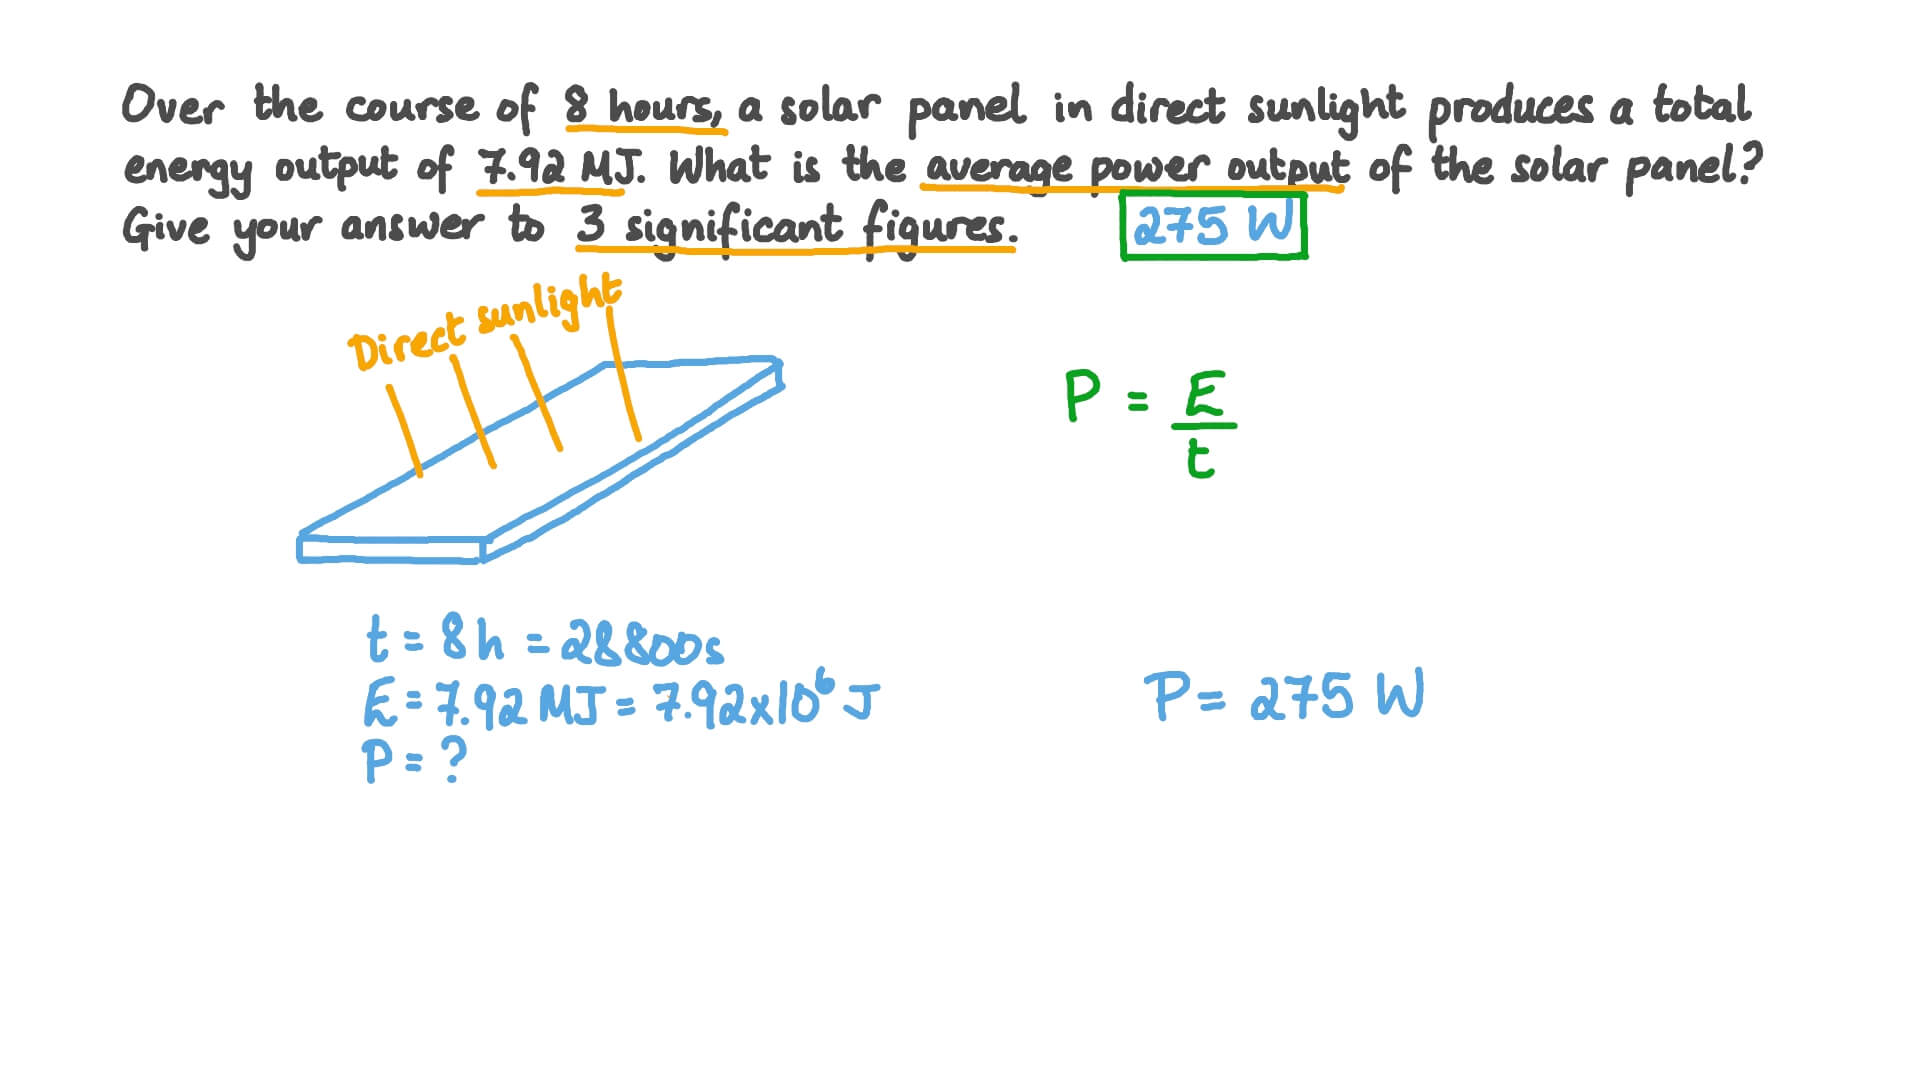 Over the course of 8 hours, a solar panel in direct sunlight produces a total
energy output of 7.92 MJ. What is the average power output of the solar panel?
Give your answer to 3 significant figures. 275 W
Direct sunlight
P = E
t
t = 8h = 28800s
E = 7.92 MJ = 7.92x10⁶ J
P = ?
P = 275 W